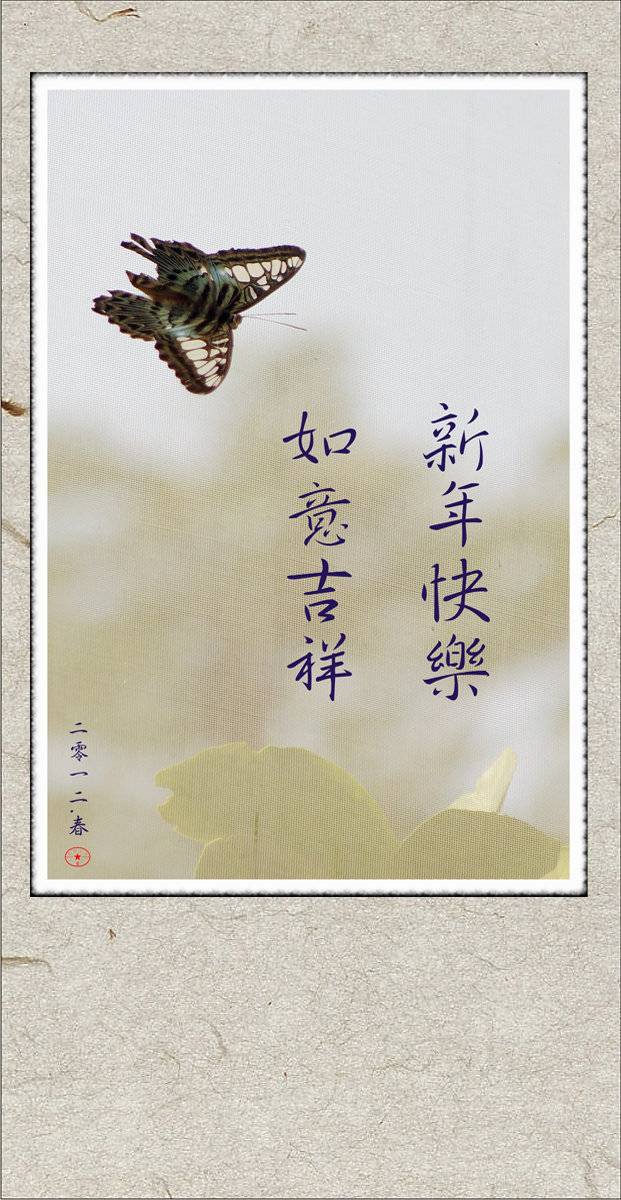 新年快樂
如意吉祥
二零一二.春